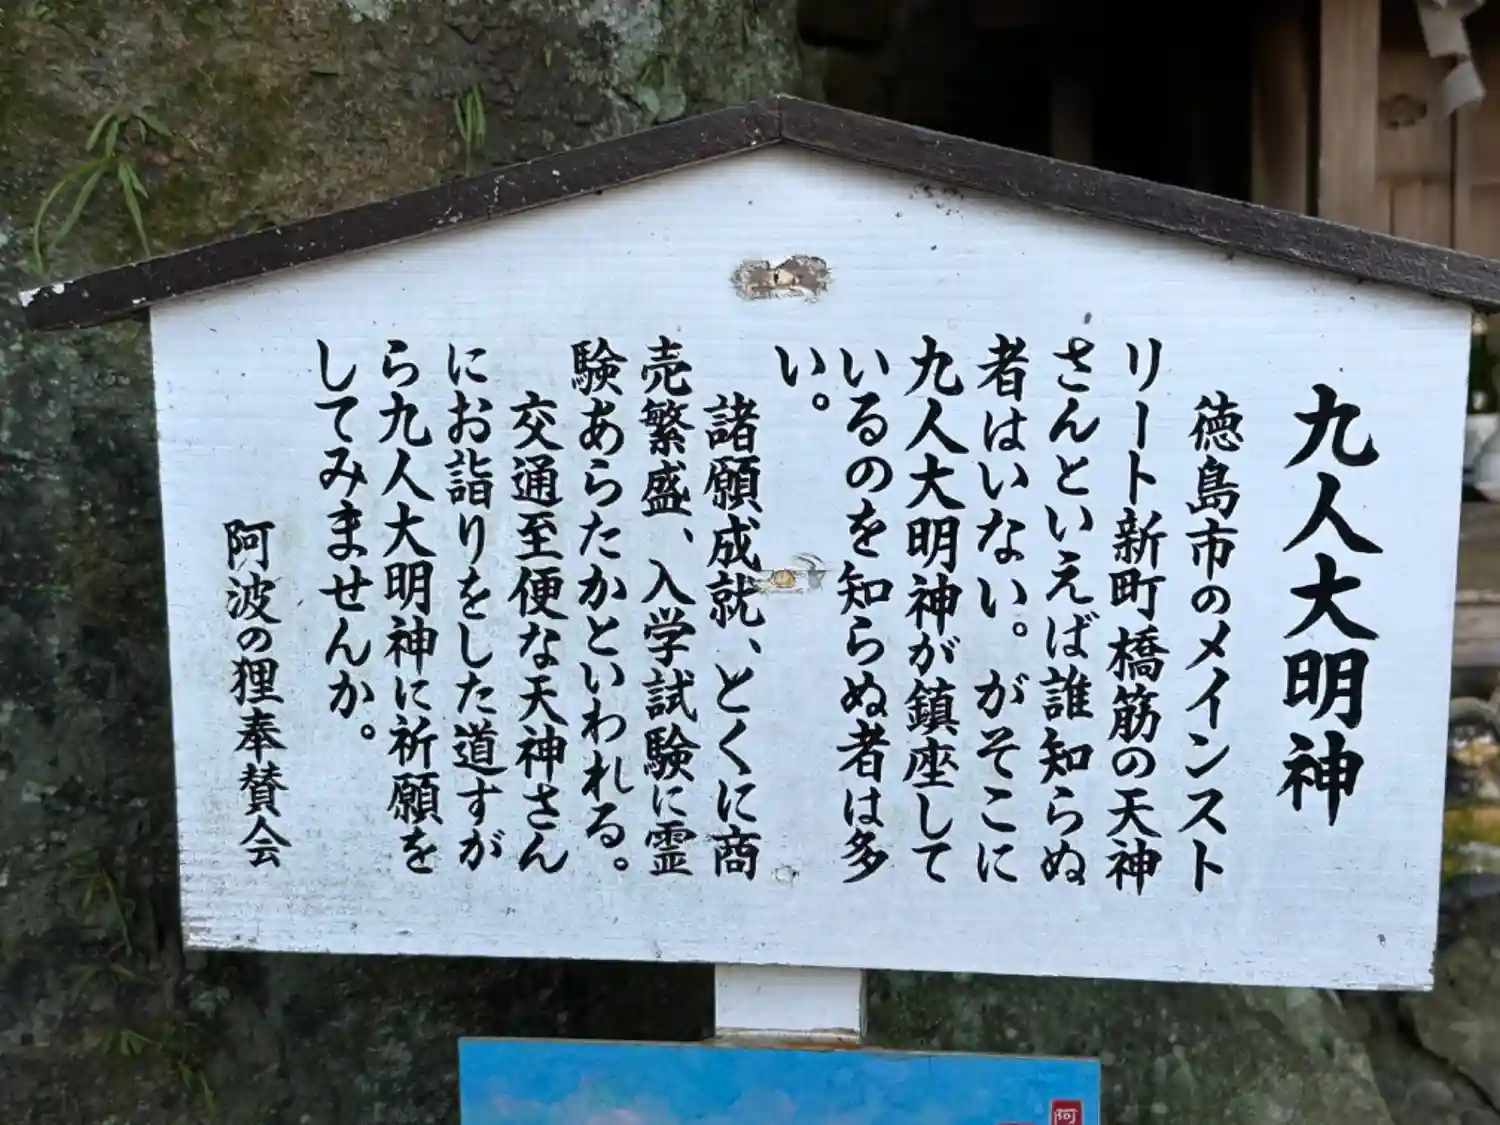 九人大明神
徳島市のメインスト
リート新町橋筋の天神
さんといえば誰知らぬ
者はいない。がそこに
九人大明神が鎮座して
いるのを知らぬ者は多
い。
諸願成就、とくに商
売繁盛、入学試験に霊
験あらたかといわれる。
交通至便な天神さん
にお詣りをした道すが
ら九人大明神に祈願を
してみませんか。
阿波の狸奉賛会
阿